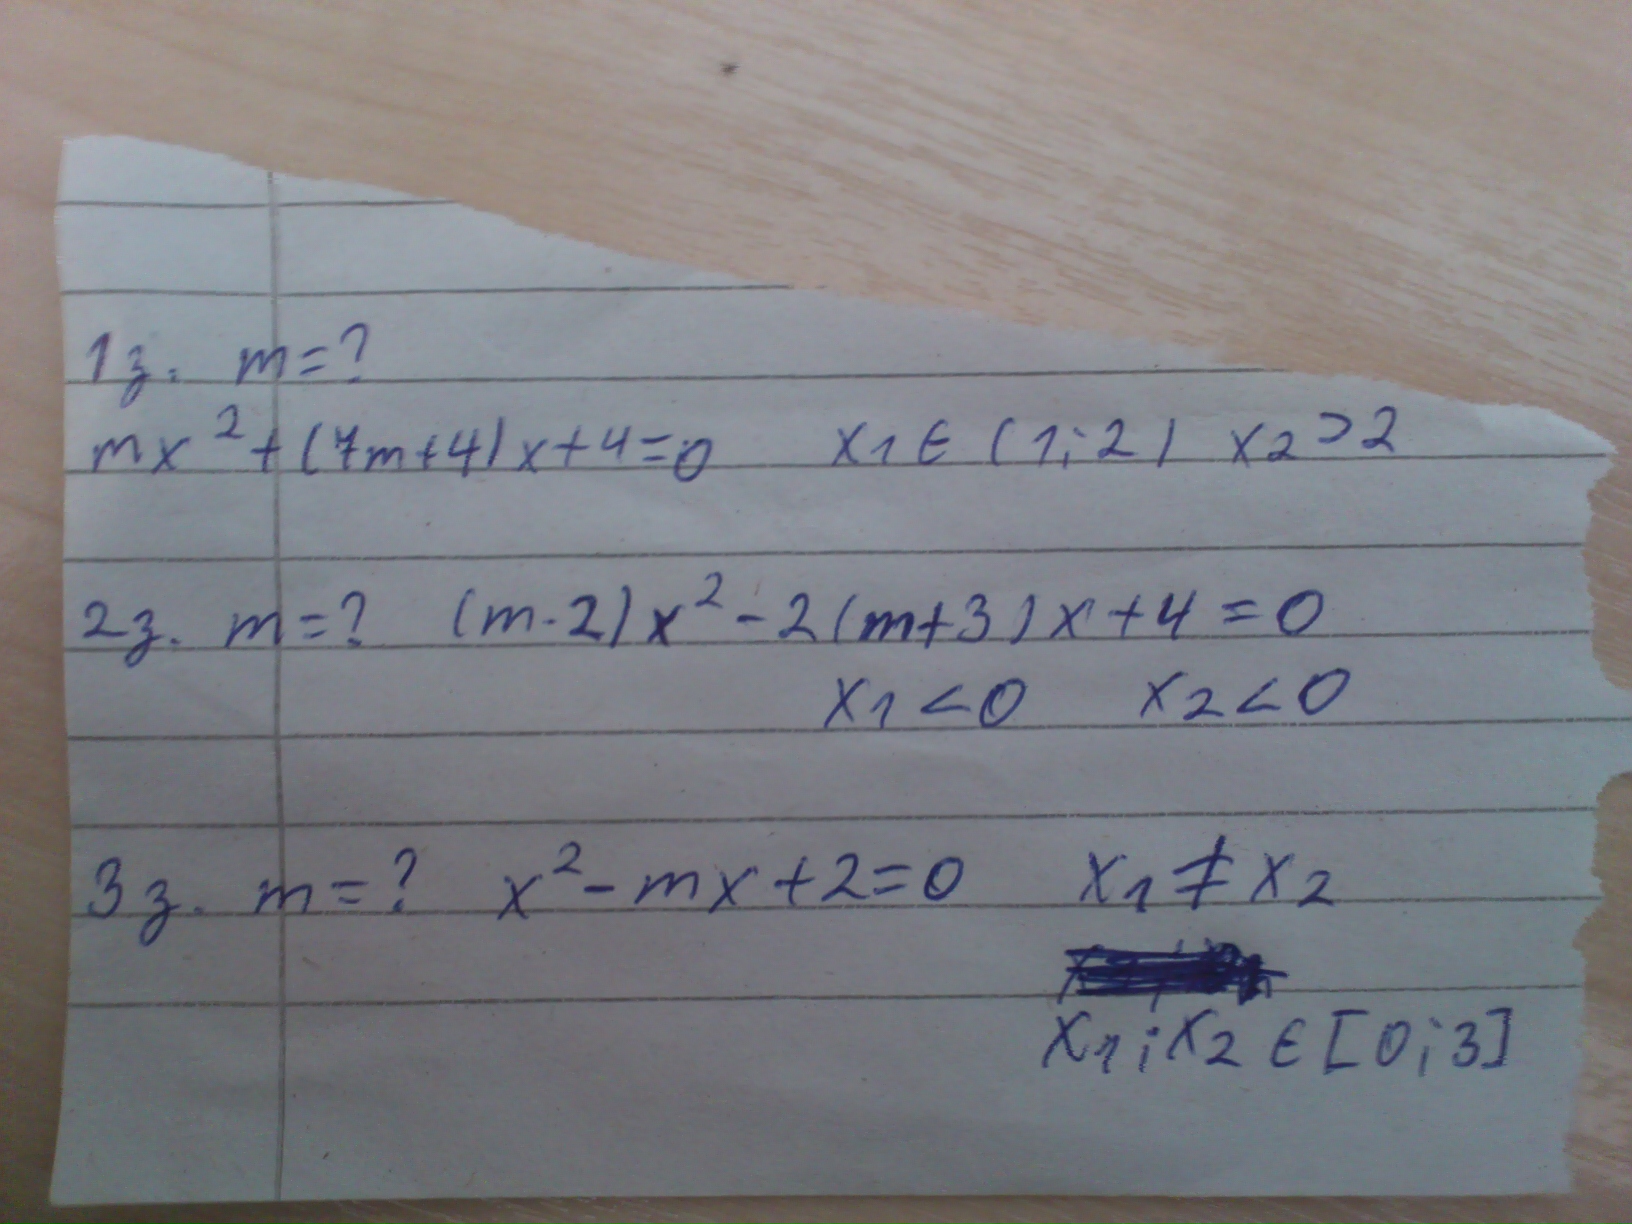 1z. m=?
mx²+(7m+4)x+4=0 x₁∈(1;2) x₂>2
2z. m=? (m-2)x²-2(m+3)x+4=0
x₁<0 x₂<0
3z. m=? x²-mx+2=0 x₁≠x₂
x₁;x₂∈[0;3]